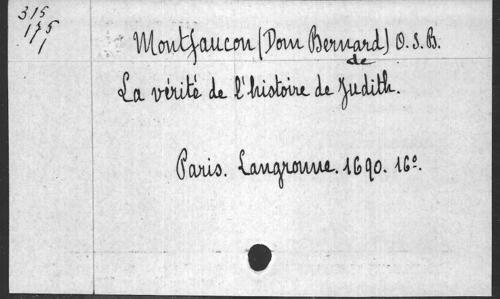 315
175
1
Montfaucon (Dom Bernard) O.S.B.
de
La vérité de l'histoire de Judith.
Paris. Langronne. 1690. 16º.